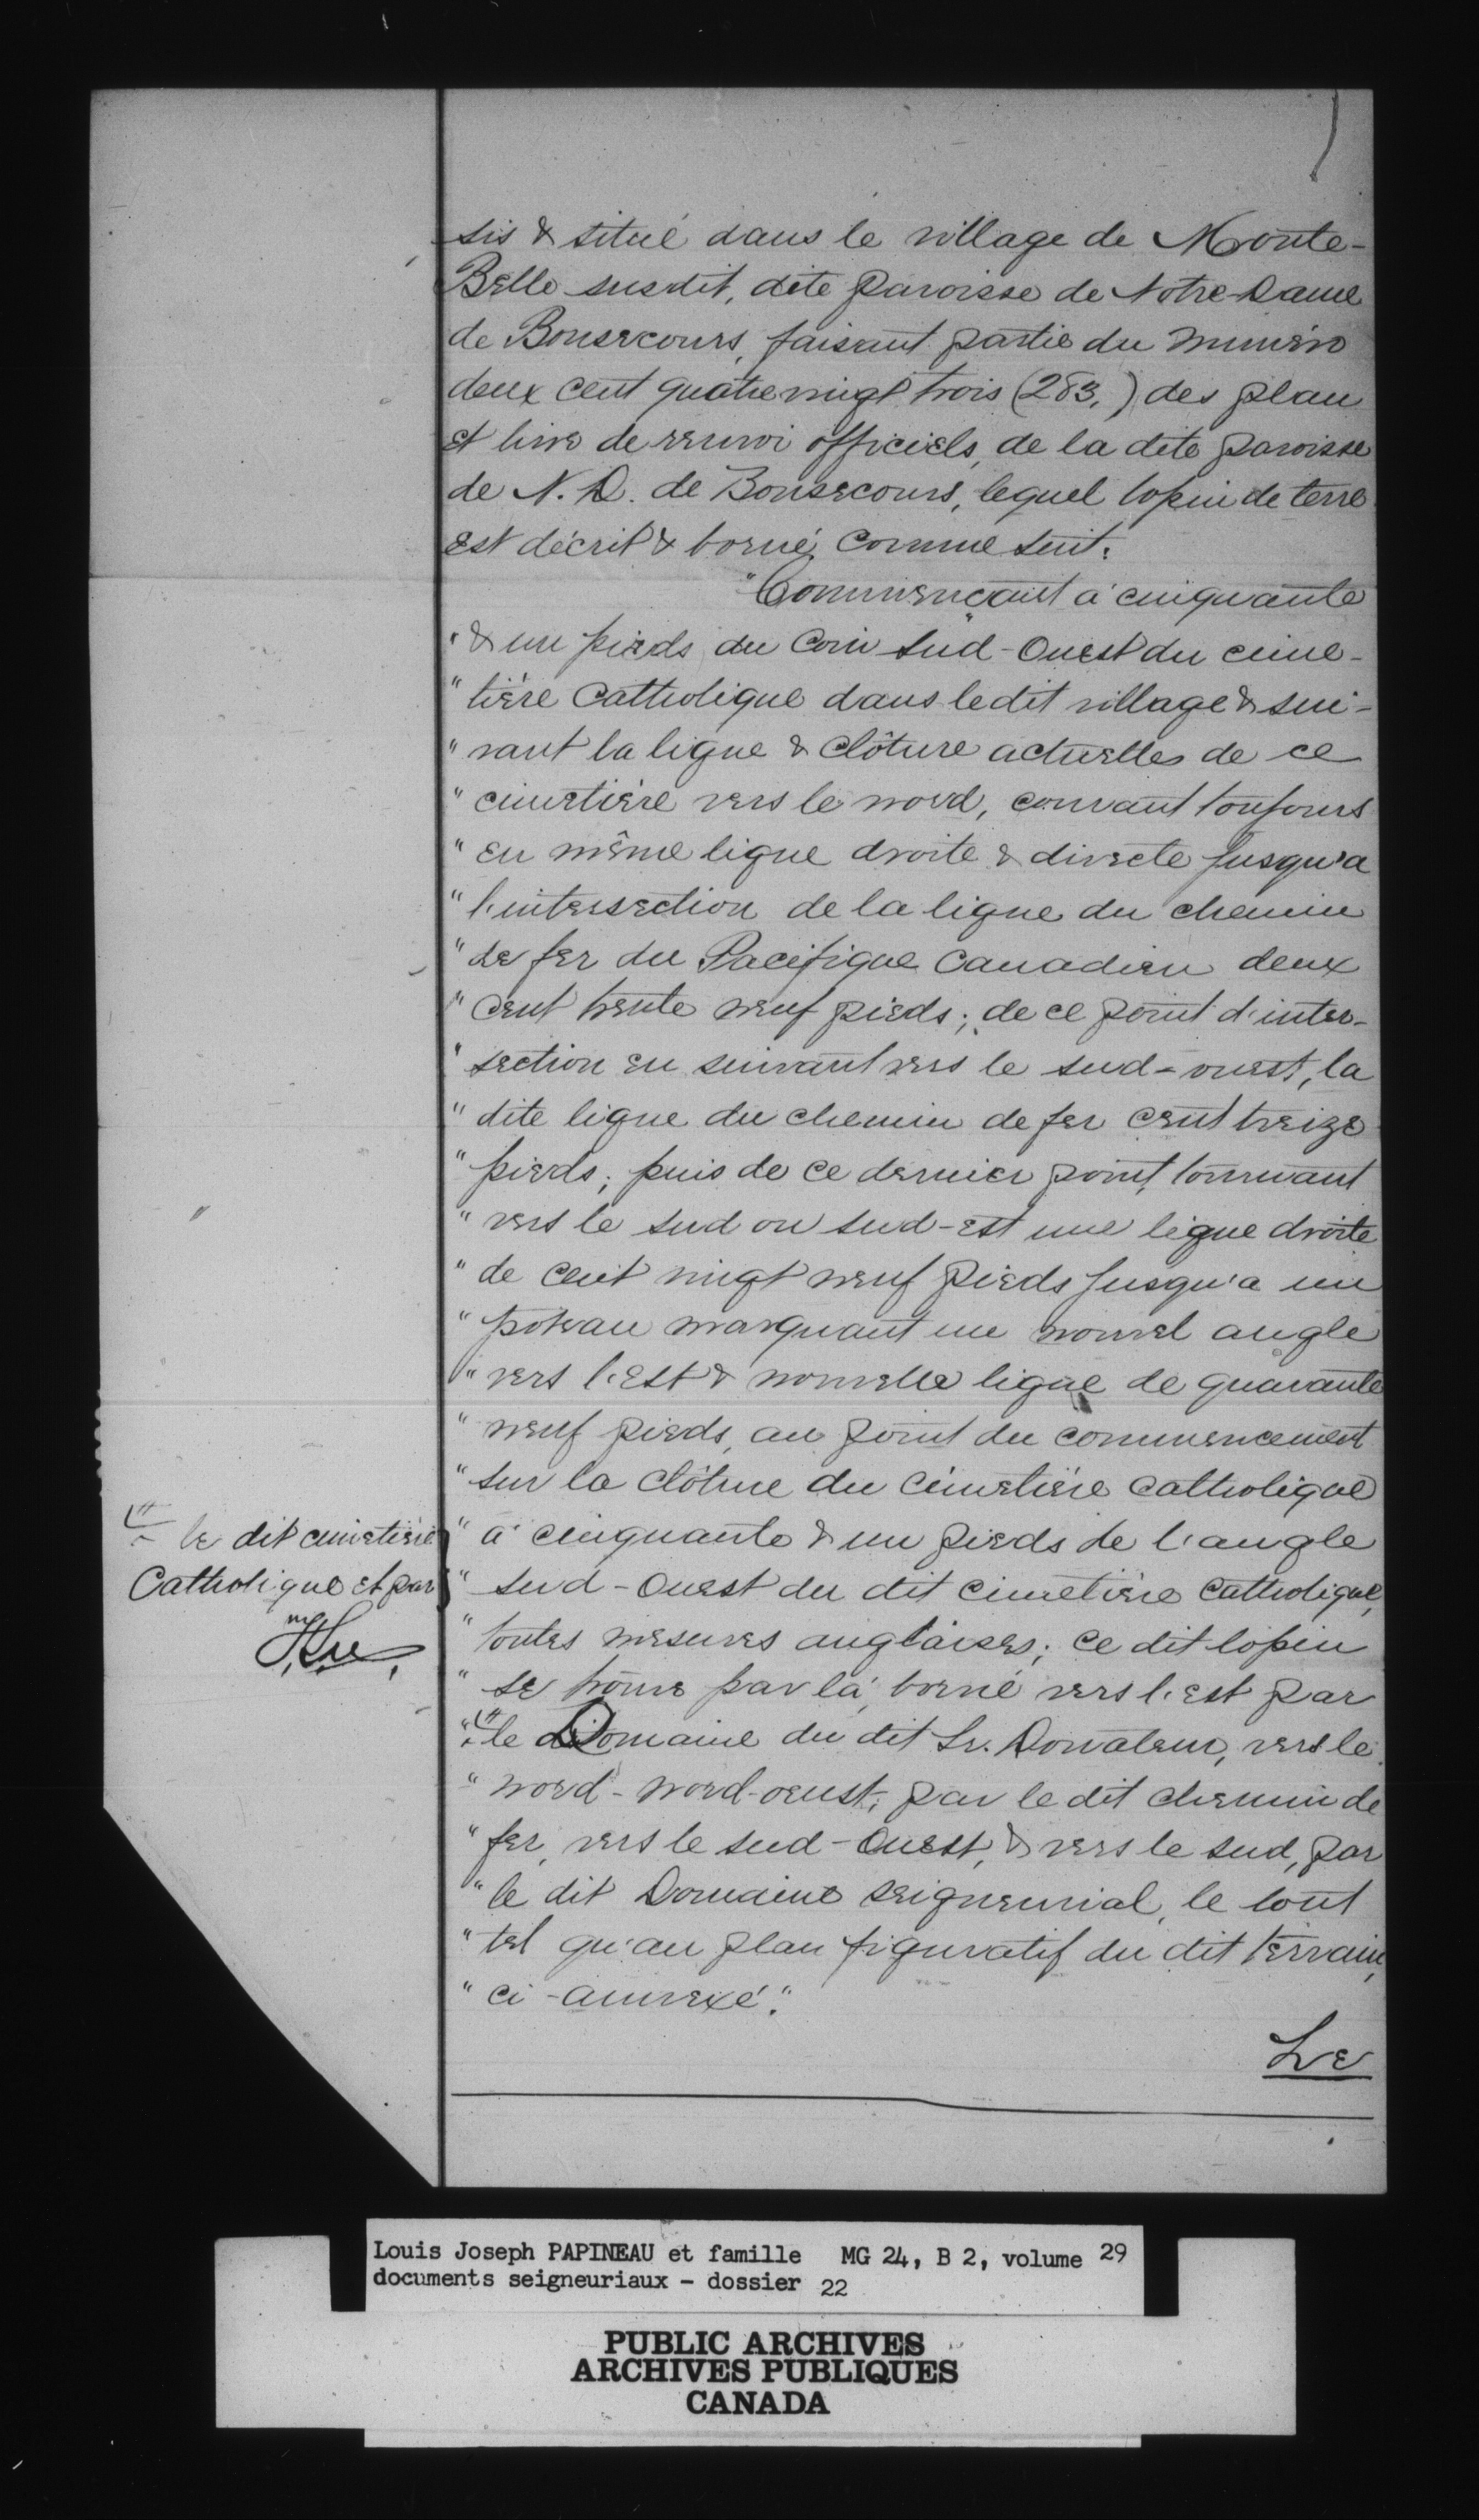 sis & situé dans le village de Monte-
Bello susdit, dite paroisse de Notre-Dame
de Bonsecours, faisant partie du numéro
deux cent quatrevingt trois (283,) des plan
et livre de renvoi officiels, de la dite paroisse
de N. D. de Bonsecours, lequel lopin de terre
est décrit & borné, comme suit:
"Commençant à cinquante
"& un pieds du coin Sud-Ouest du cime-
"tière Catholique dans le dit village & sui-
"vant la ligne & clôture actuelles de ce
"cimetière vers le nord, courant toujours
"en même ligne droite & directe jusqu'à
"l'intersection de la ligne du chemin
"de fer du Pacifique Canadien deux
"cent trente neuf pieds; de ce point d'inter-
"section en suivant vers le sud-ouest, la
"dite ligne du chemin de fer cent treize
"pieds; puis de ce dernier point, tournant
"vers le sud ou sud-est une ligne droite
"de cent vingt neuf pieds jusqu'à un
"poteau marquant un nouvel angle
"vers l'Est & nouvelle ligne de quarante
"neuf pieds, au point du commencement
"sur la clôture du Cimetière Catholique
"à cinquante & un pieds de l'angle
"Sud-Ouest du dit cimetière Catholique,
"toutes mesures anglaises; ce dit lopin
"se trouve par là, borné vers l'est par
"le Domaine du dit Sr. Donateur, vers le
"nord-nord-oeust, par le dit chemin de
"fer, vers le sud-Ouest, & vers le sud, par
"le dit Domaine seigneurial, le tout
"tel qu'au plan figuratif du dit terrain,
"ci-annexé."
Le
le dit cimetière
Catholique et par
Louis Joseph PAPINEAU et famille MG 24, B 2, volume 29
documents seigneuriaux - dossier 22
PUBLIC ARCHIVES
ARCHIVES PUBLIQUES
CANADA